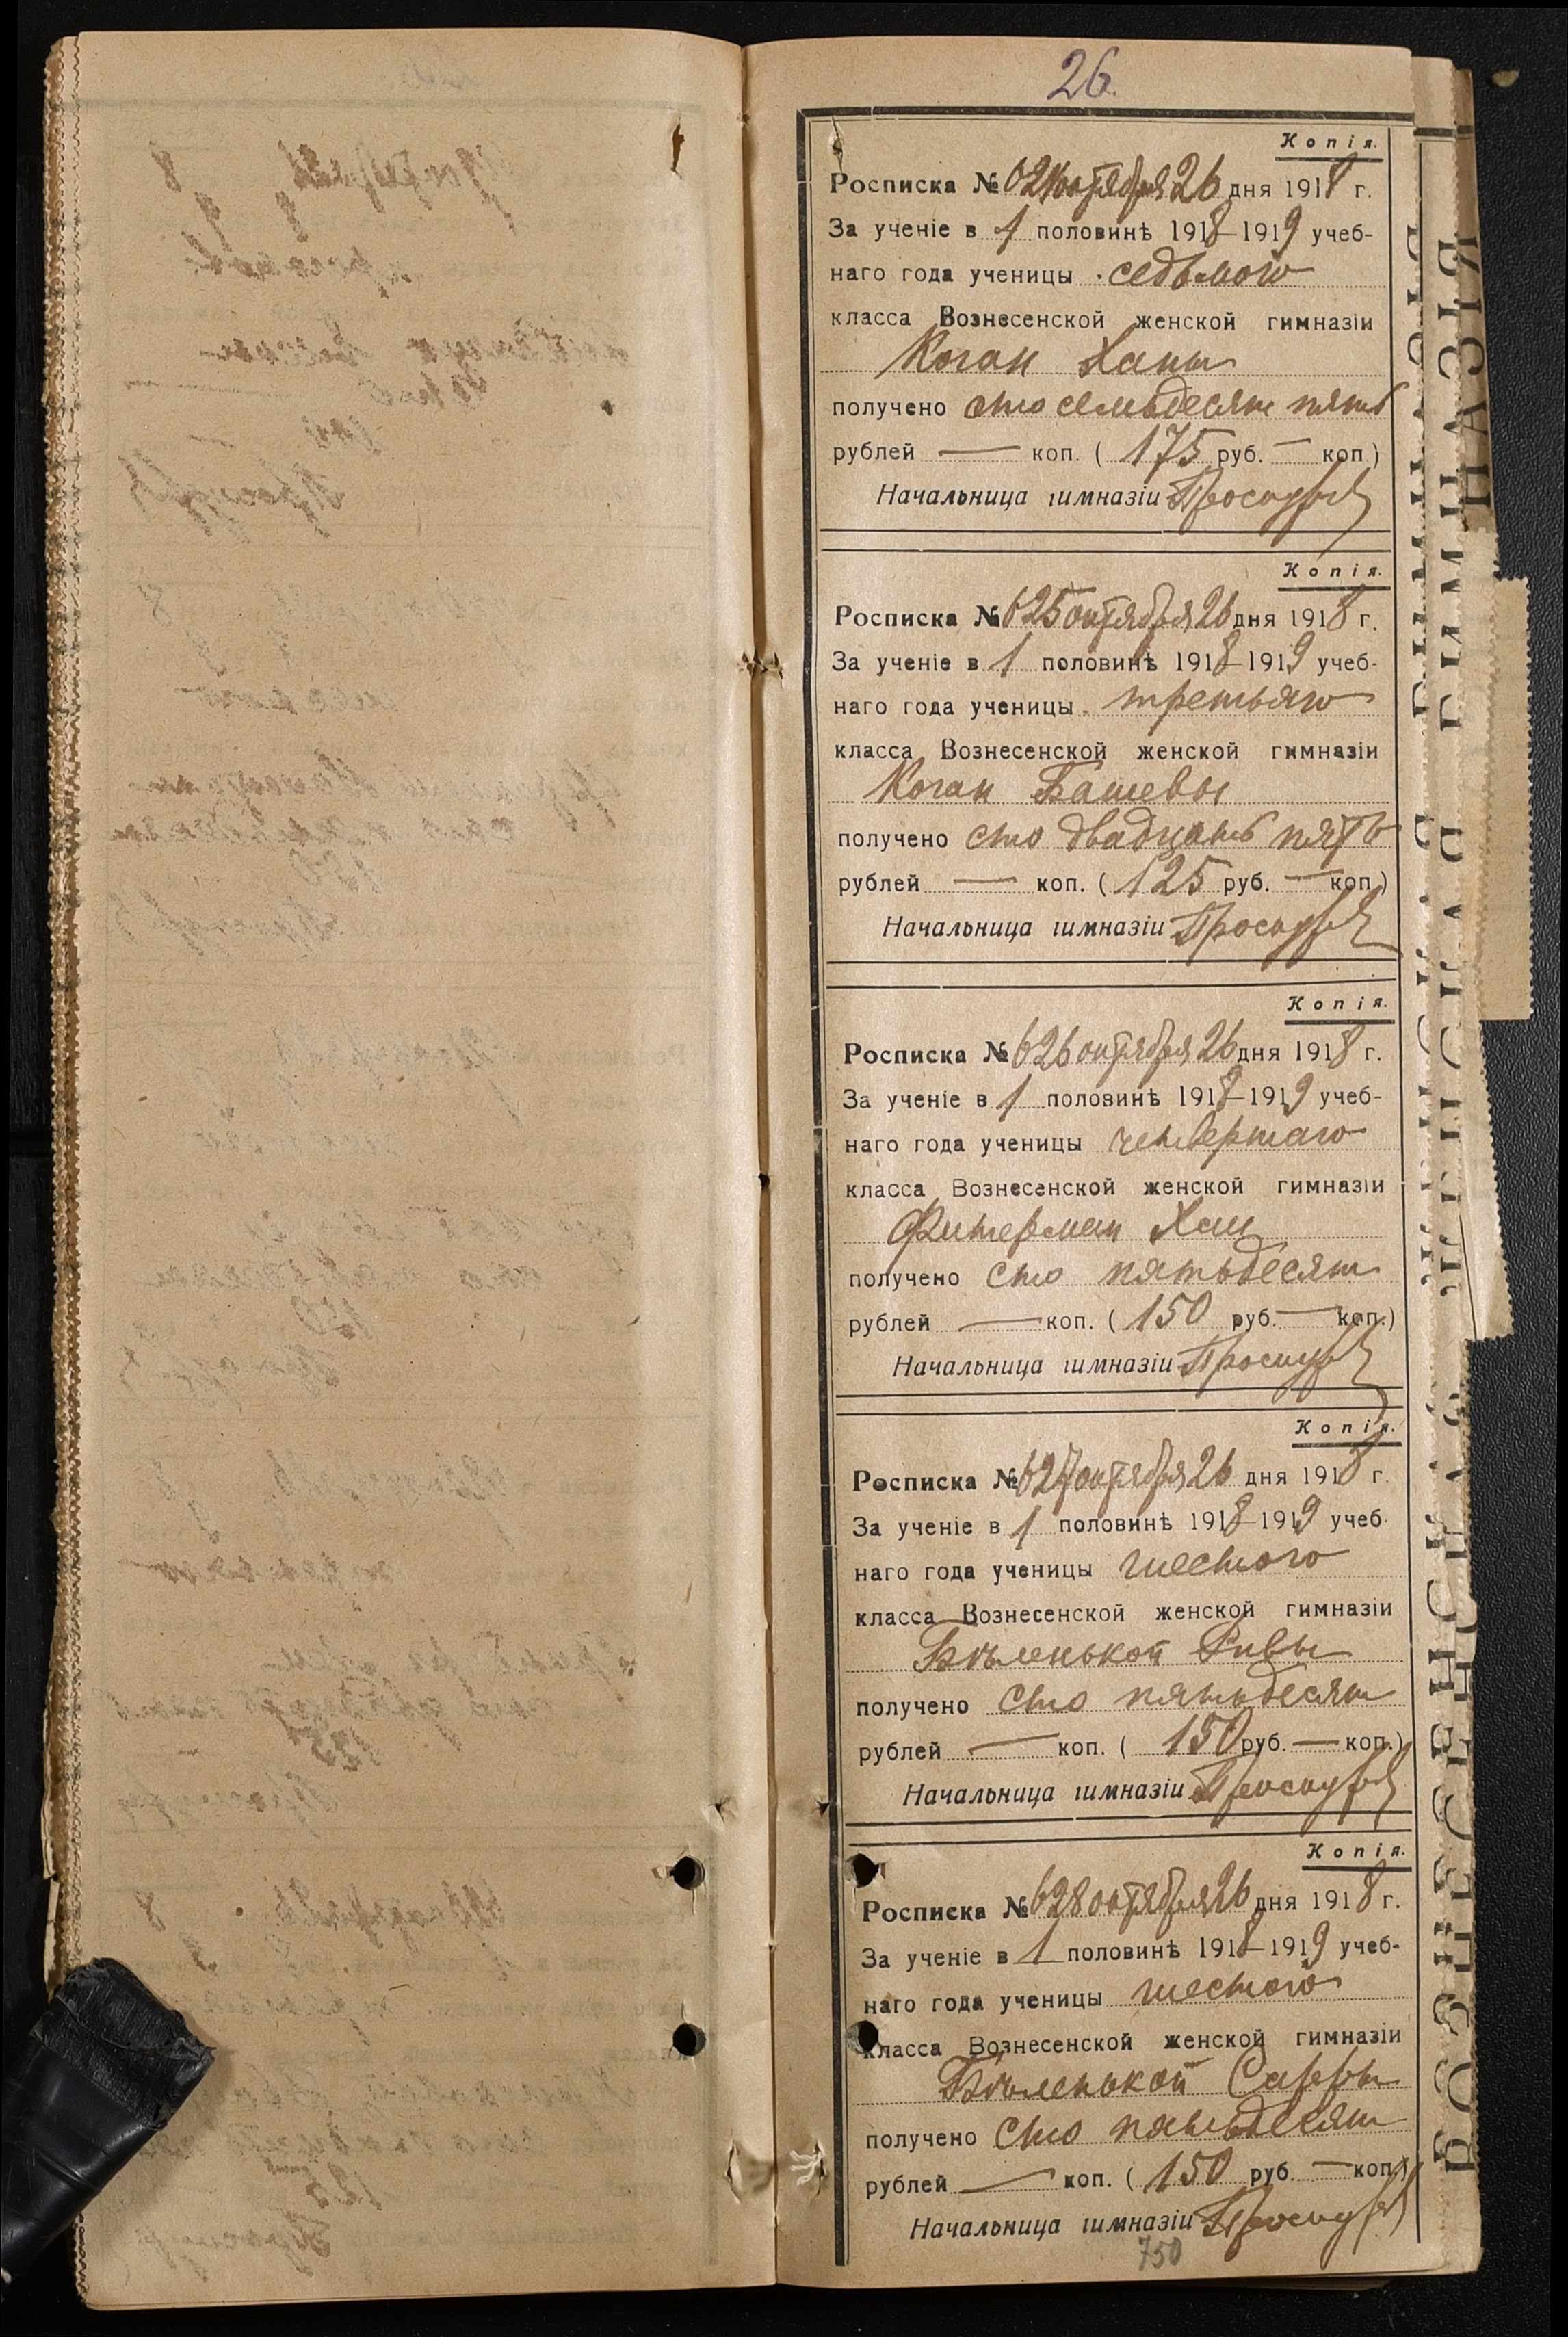 26.
Копія.
Росписка № 624 октября 26 дня 1918 г.
За ученіе в 1 половинѣ 1918-1919 учеб-
наго года ученицы седьмого
класса Вознесенской женской гимназіи
Коган Ханы
получено сто семьдесят пять
рублей — коп. ( 175 руб. — коп.)
Начальница гимназіи
Копія.
Росписка № 625 октября 26 дня 1918 г.
За ученіе в 1 половинѣ 1918-1919 учеб-
наго года ученицы третьяго
класса Вознесенской женской гимназіи
Коган Башевы
получено сто двадцать пять
рублей — коп. ( 125 руб. — коп.)
Начальница гимназіи
Копія.
Росписка № 626 октября 26 дня 1918 г.
За ученіе в 1 половинѣ 1918-1919 учеб-
наго года ученицы четвертаго
класса Вознесенской женской гимназіи
Фитерман Хаи
получено сто пятьдесят
рублей — коп. ( 150 руб. — коп.)
Начальница гимназіи
Копія.
Росписка № 627 октября 26 дня 1918 г.
За ученіе в 1 половинѣ 1918-1919 учеб-
наго года ученицы шестого
класса Вознесенской женской гимназіи
Бѣленькой Ривы
получено сто пятьдесят
рублей — коп. ( 150 руб. — коп.)
Начальница гимназіи
Копія.
Росписка № 628 октября 26 дня 1918 г.
За ученіе в 1 половинѣ 1918-1919 учеб-
наго года ученицы шестого
класса Вознесенской женской гимназіи
Бѣленькой Сарры
получено сто пятьдесят
рублей — коп. ( 150 руб. — коп.)
Начальница гимназіи
750